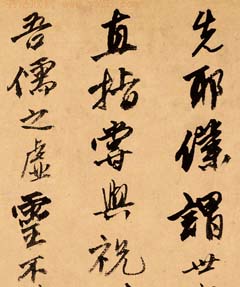 先耶僕謂世
直指嘗與祝
吾儒之虛靈不